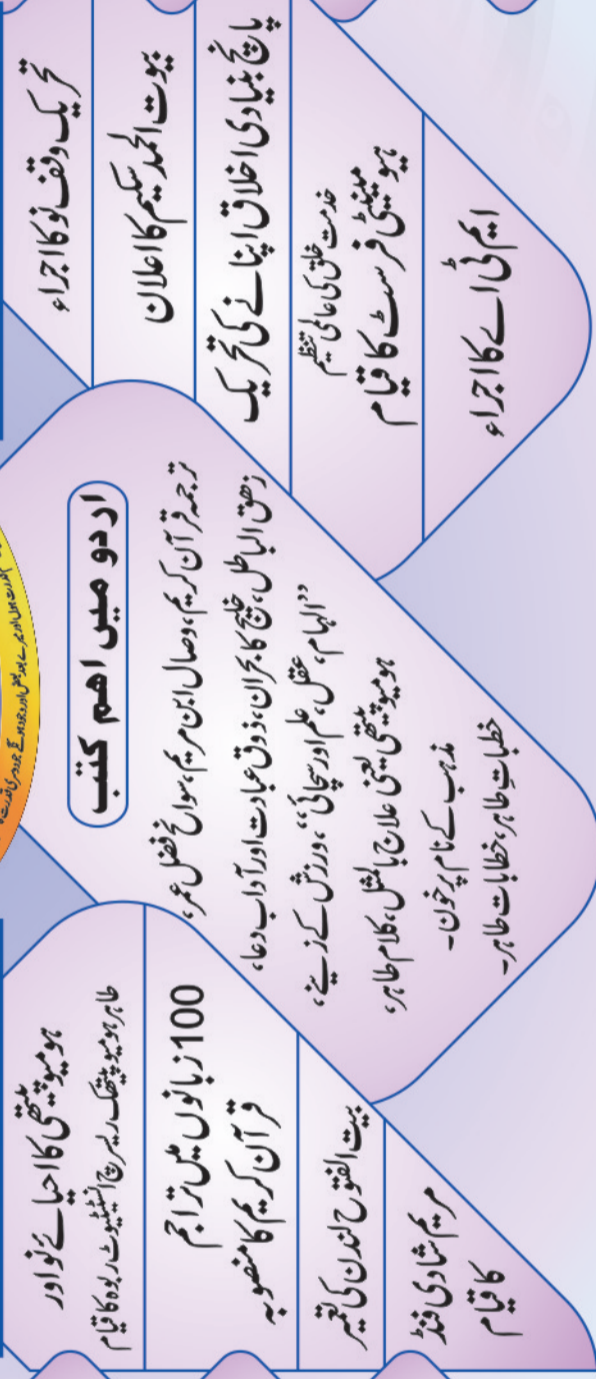 تحریک وقف نو کا اجراء
بیوت الحمد سکیم کا اعلان
پانچ بنیادی اخلاق اپنانے کی تحریک
خدمت خلق کی عالمی تنظیم
ہیومینیٹی فرسٹ کا قیام
ایم ٹی اے کا اجراء
اردو میں اہم کتب
ترجمہ قرآن کریم، وصال ابن مریم، سوانح فضل عمر،
زھق الباطل، خلیج کا بحران، ذوق عبادت اور آداب دعا،
”الہام، عقل، علم اور سچائی“، ورزش کے زینے،
ہومیوپیتھی یعنی علاج بالمثل، کلام طاہر،
مذہب کے نام پر خون۔
خطباتِ طاہر، خطابات طاہر۔
ہومیوپیتھی کا احیائے نو اور
طاہر ہومیوپیتھک ریسرچ انسٹیٹیوٹ ربوہ کا قیام
100 زبانوں میں تراجم
قرآن کریم کا منصوبہ
بیت الفتوح لندن کی تعمیر
مریم شادی فنڈ
کا قیام